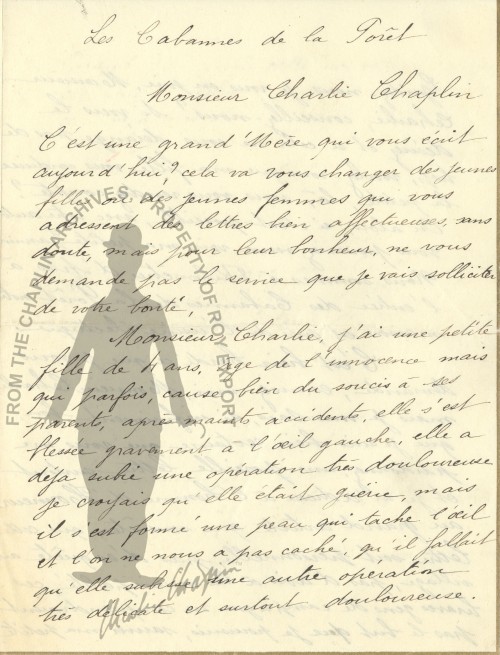 Les Cabannes de la Forêt
Monsieur Charlie Chaplin
C'est une grand'Mère qui vous écrit
aujourd'hui? cela va vous changer des jeunes
filles ou des jeunes femmes qui vous
adressent des lettres bien affectueuses, sans
doute, mais pour leur bonheur, ne vous
demande pas le service que je vais solliciter
de votre bonté,
Monsieur Charlie, j'ai une petite
fille de 4 ans, âge de l'innocence mais
qui parfois, cause bien du soucis a ses
parents, après maints accidents, elle s'est
blessée gravement a l'œil gauche, elle a
déja subie une opération très douloureuse
je croyais qu'elle etait guérie, mais
il s'est formé une peau qui tache l'œil
et l'on ne nous a pas caché, qu'il fallait
qu'elle subisse une autre opération
très délicate et surtout douloureuse.
FROM THE CHAPLIN ARCHIVES PROPERTY OF ROY EXPORT
Charlie Chaplin